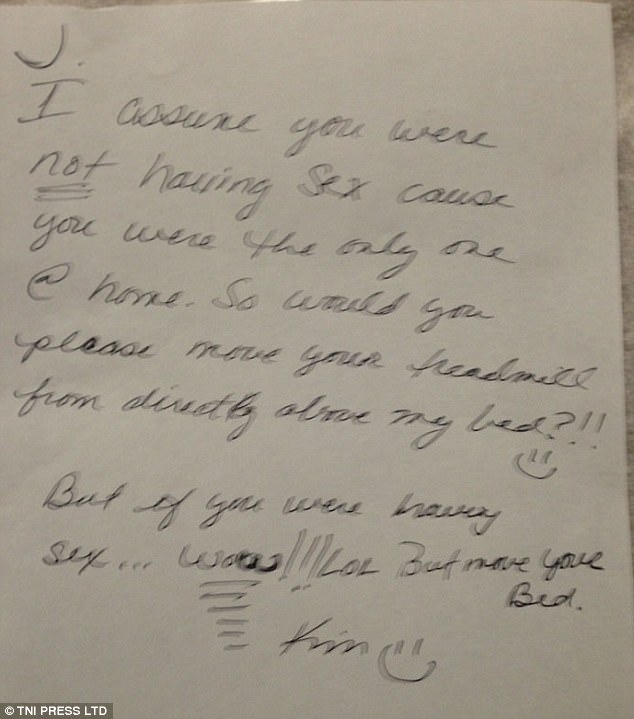 J.
I assume you were
not having Sex cause
you were the only one
@ home. So would you
please move your treadmill
from directly above my bed?!!
But if you were having
sex... wow!!!! LOL But move your
Bed.
Kim
© TNI PRESS LTD